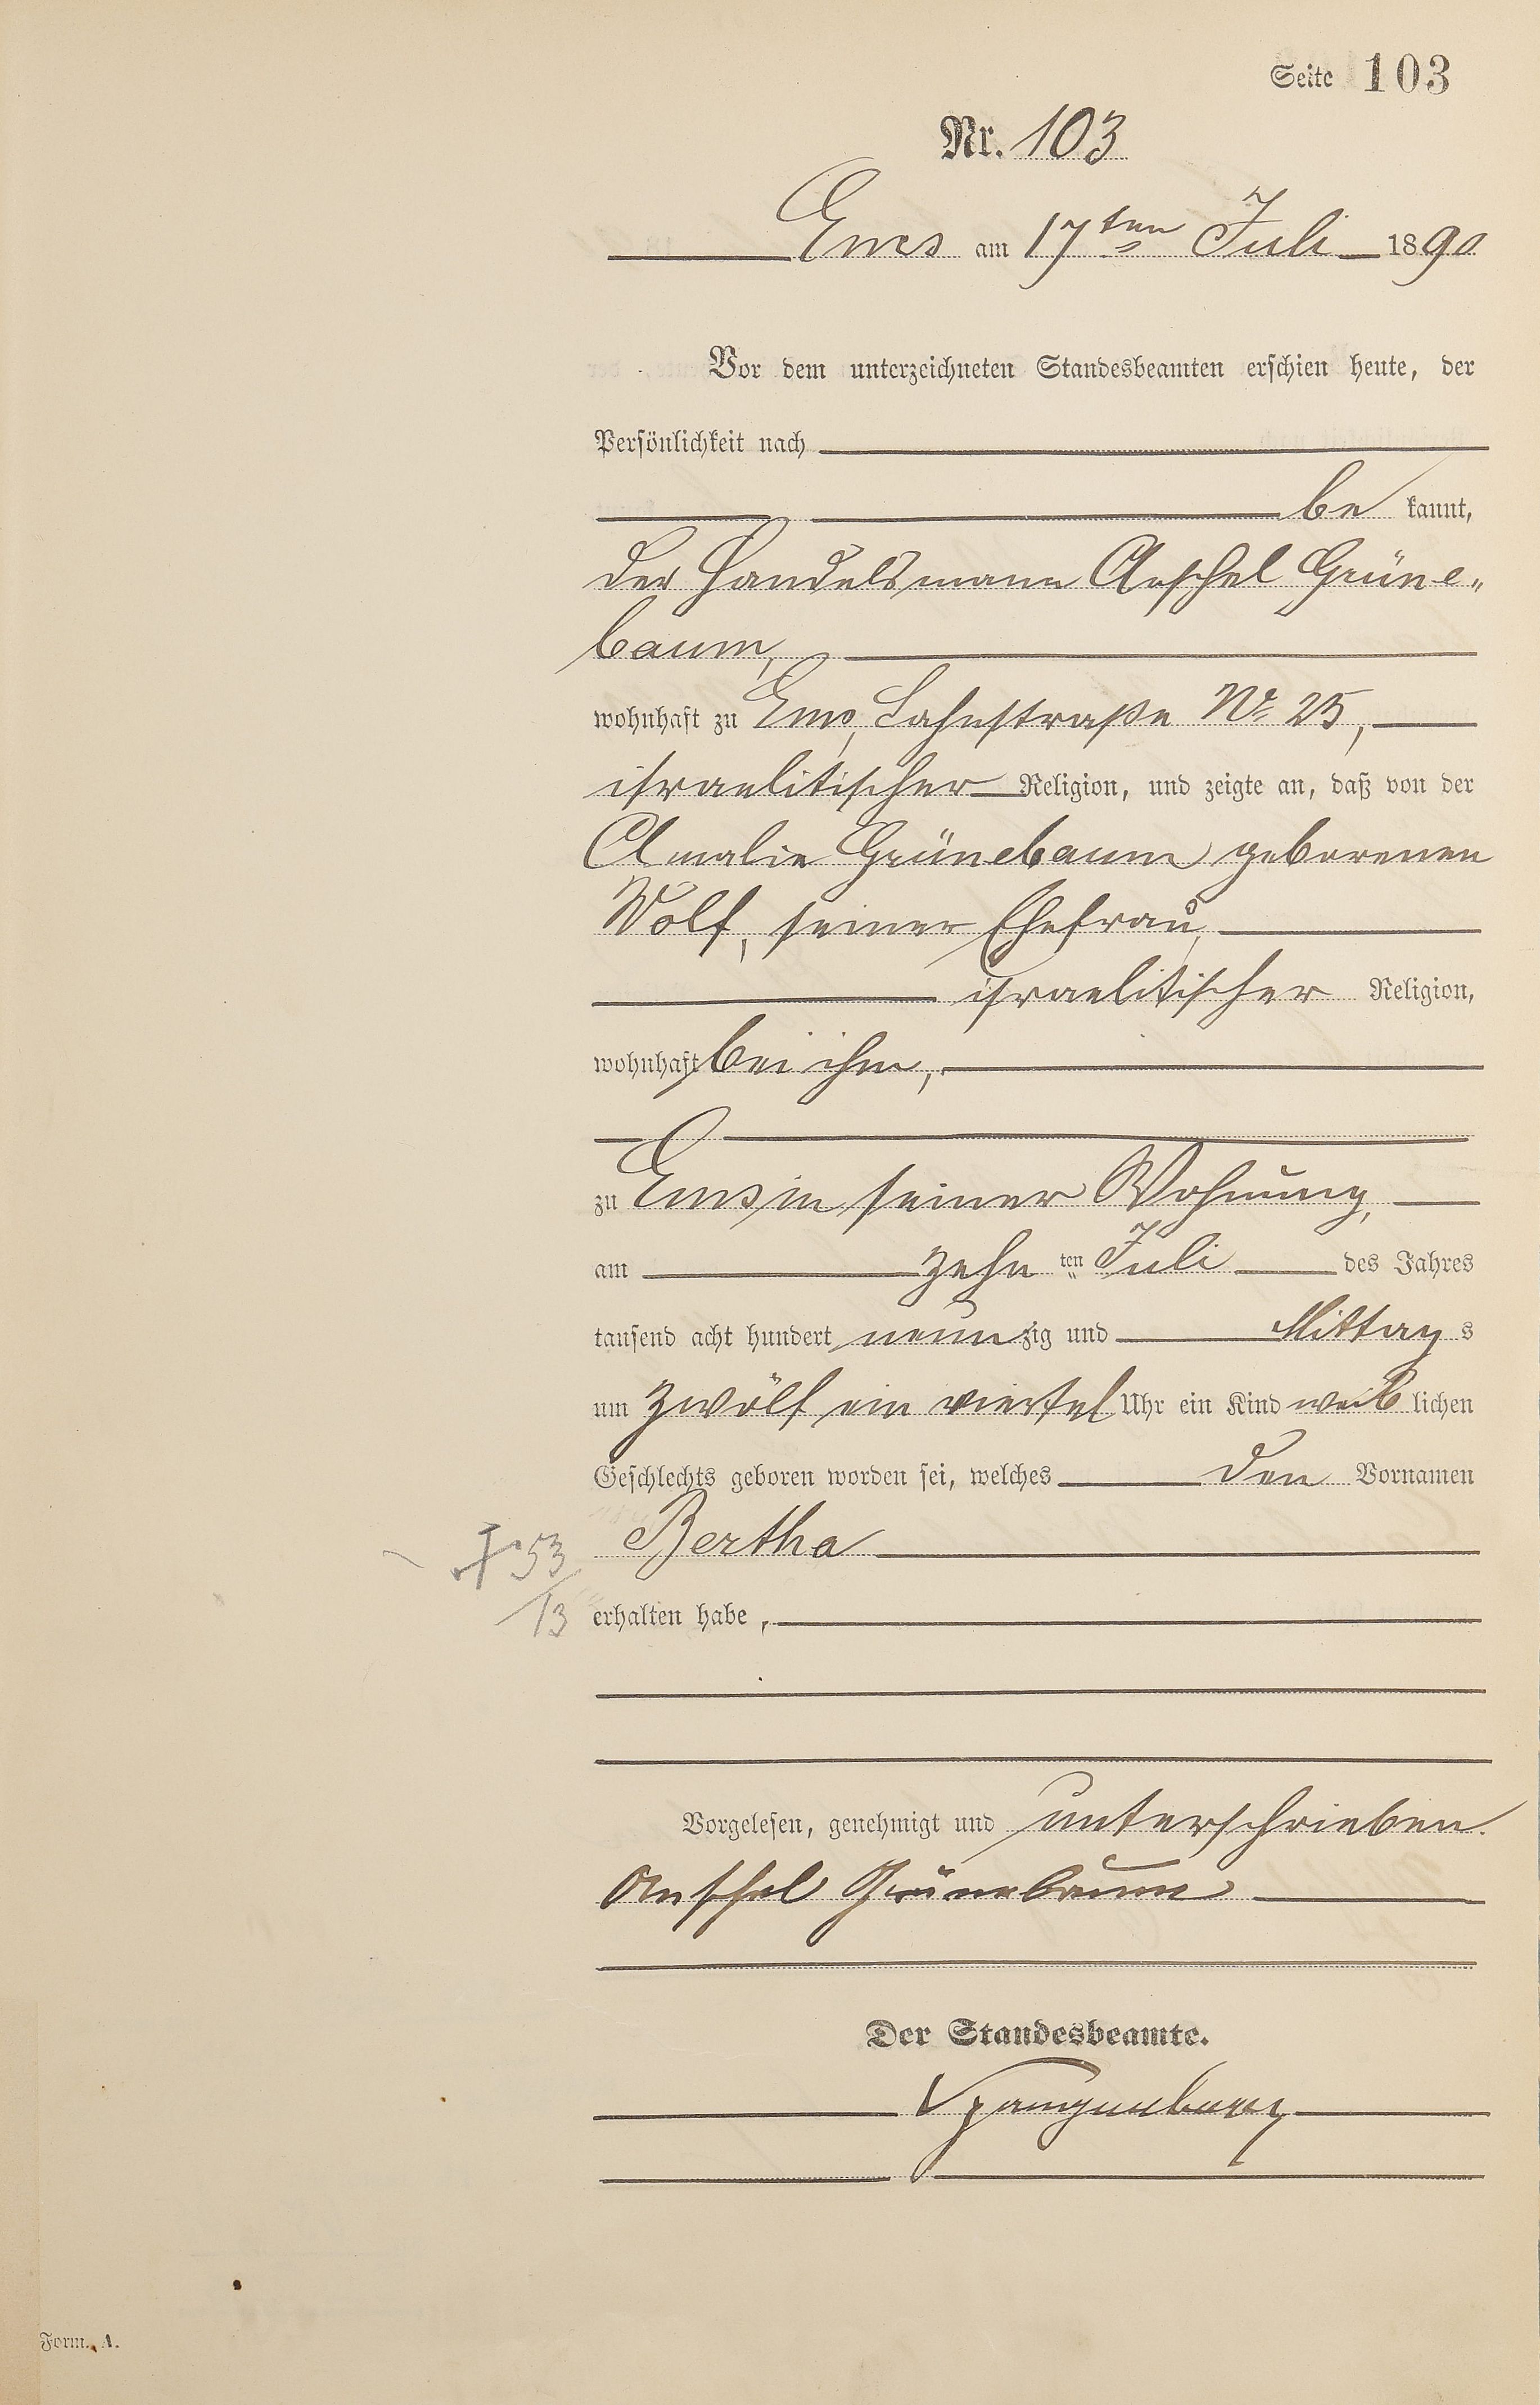 Seite 103
Nr. 103
Ems am 17ten Juli 1890
Vor dem unterzeichneten Standesbeamten erschien heute, der
Persönlichkeit nach
be kannt,
der Handelsmann Anschel Grüne„
baum,
wohnhaft zu Ems, Lahnstraße No 25,
israelitischer Religion, und zeigte an, daß von der
Amalie Grünebaum geborenen
Wolf, seiner Ehefrau,
israelitischer Religion,
wohnhaft bei ihm,
zu Ems in seiner Wohnung,
am zehn ten Juli des Jahres
tausend acht hundert neun zig und Mittag s
um zwölf ein viertel Uhr ein Kind weib lichen
Geschlechts geboren worden sei, welches den Vornamen
Bertha
+ 53
/13
erhalten habe,
Vorgelesen, genehmigt und unterschrieben.
Anschel Grünebaum
Der Standesbeamte.
Spangenberg
Form. A.